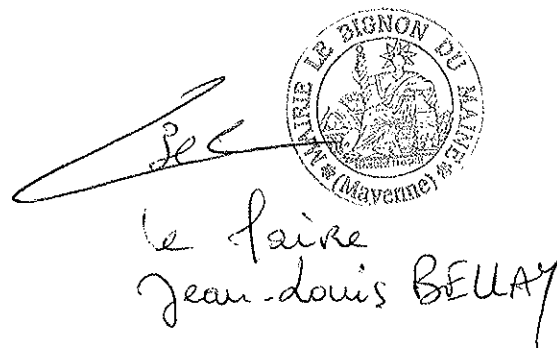 MAIRIE LE BIGNON DU MAINE
(Mayenne)
Le Maire
Jean-Louis BELLAY